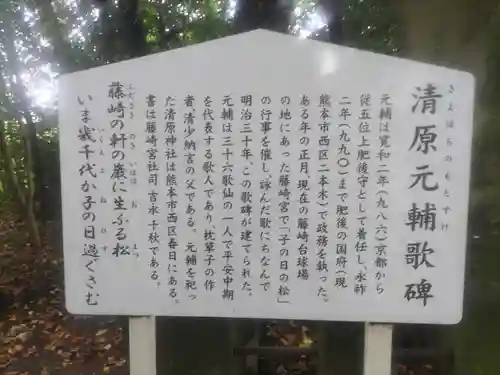 清原元輔歌碑
きよはらのもとすけ
元輔は寛和二年(九八六)京都から
従五位上肥後守として着任し、永祚
二年(九九〇)まで肥後の国府(現
熊本市西区二本木)で政務を執った。
ある年の正月、現在の藤崎台球場
の地にあった藤崎宮で「子の日の松」
の行事を催し、詠んだ歌にちなんで
明治三十年、この歌碑が建てられた。
元輔は三十六歌仙の一人で平安中期
を代表する歌人であり、枕草子の作
者、清少納言の父である。元輔を祀っ
た清原神社は熊本市西区春日にある。
書は藤崎宮社司、吉永千秋である。
藤崎の軒の巌に生ふる松
ふじさき のき いはほ お まつ
いま幾千代か子の日過ぐさむ
いくちよ ねのひす